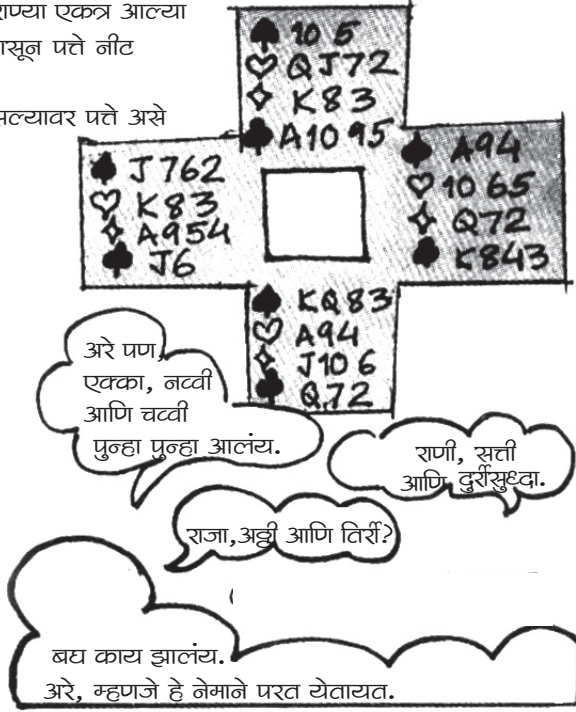 राण्या एकत्र आल्या
पासून पत्ते नीट
असे
सल्यावर पत्ते असे
♠ 10 5
♡ Q J 7 2
♢ K 8 3
♣ A 10 9 5
♠ J 7 6 2
♡ K 8 3
♢ A 9 5 4
♣ J 6
♠ A 9 4
♡ 10 6 5
♢ Q 7 2
♣ K 8 4 3
♠ K Q 8 3
♡ A 9 4
♢ J 10 6
♣ Q 7 2
अरे पण,
एक्का, नव्वी
आणि चव्वी
पुन्हा पुन्हा आलंय.
राणी, सत्ती
आणि दुर्रीसुध्दा.
राजा,अठ्ठी आणि तिर्री?
बघ काय झालंय.
अरे, म्हणजे हे नेमाने परत येतायत.